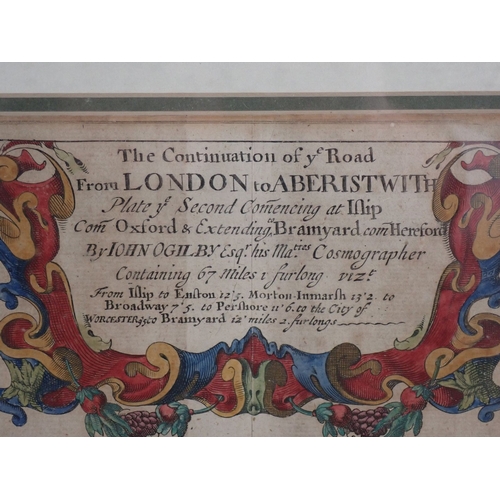 The Continuation of yᵉ Road
From LONDON to ABERISTWITH
Plate yᵉ Second Com̄encing at Iſlip
Com̄ Oxford & Extending Bramyard com̄ Hereford
By IOHN OGILBY Esqʳ. his Maᵗⁱᵉˢ Cosmographer
Containing 67 Miles 1 furlong vizᵗ.
From Iſlip to Enſton 12'3. Morton-Inmarsh 13'2. to
Broadway 7'5. to Pershore 11'6. to the City of
WORCESTER to Bramyard 12 miles 2 furlongs